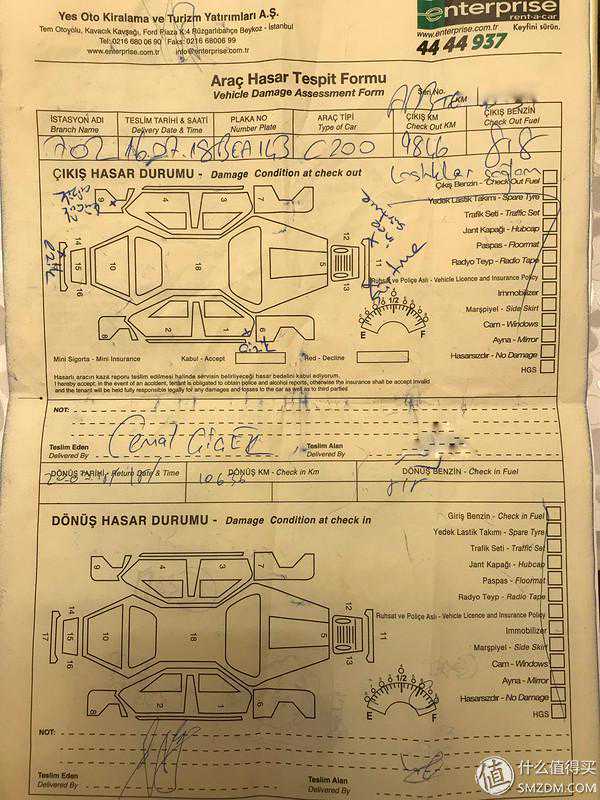 Yes Oto Kiralama ve Turizm Yatırımları A.Ş.
Tem Otoyolu, Kavacık Kavşağı, Ford Plaza K:4 Rüzgarlıbahçe Beykoz - İstanbul
Tel: 0216 680 06 90 Faks: 0216 680 06 99
www.enterprise.com.tr info@enterprise.com.tr
enterprise
rent-a-car
www.enterprise.com.tr Keyfini sürün.
44 44 937
Araç Hasar Tespit Formu
Vehicle Damage Assessment Form
Seri No.
KM
İSTASYON ADI
Branch Name
TESLİM TARİHİ & SAATİ
Delivery Date & Time
PLAKA NO
Number Plate
ARAÇ TİPİ
Type of Car
ÇIKIŞ KM
Check Out KM
ÇIKIŞ BENZİN
Check Out Fuel
C200
9846
8/8
ÇIKIŞ HASAR DURUMU - Damage Condition at check out
Lastikler sağlam
Çıkış Benzin - Check Out Fuel
Yedek Lastik Takımı - Spare Tyre
Trafik Seti - Traffic Set
Jant Kapağı - Hubcap
Paspas - Floormat
Radyo Teyp - Radio Tape
Ruhsat ve Poliçe Aslı - Vehicle Licence and Insurance Policy
Immobilizer
Marşpiyel - Side Skirt
Cam - Windows
Ayna - Mirror
Hasarsızdır - No Damage
HGS
9 4 3 7
17 15 14 16 10 18 5 12 13 11
8 2 1 6
çizik
E 1/2 F
Mini Sigorta - Mini Insurance Kabul - Accept Red - Decline
Hasarlı aracın kaza raporu teslim edilmesi halinde servisin belirliyeceği hasar bedelini kabul ediyorum.
I hereby accept, in the event of an accident, tenant is obligated to obtain police and alcohol reports, otherwise the insurance shall be accept invalid
and the tenant will be held fully responsible legally for any damages and losses to the car as well as to third parties
NOT:
Teslim Eden
Delivered By
Teslim Alan
Delivered By
DÖNÜŞ TARİHİ - Return Date & Time
DÖNÜŞ KM - Check in Km
DÖNÜŞ BENZİN - Check in Fuel
10636
8/8
DÖNÜŞ HASAR DURUMU - Damage Condition at check in
Giriş Benzin - Check in Fuel
Yedek Lastik Takımı - Spare Tyre
Trafik Seti - Traffic Set
Jant Kapağı - Hubcap
Paspas - Floormat
Radyo Teyp - Radio Tape
Ruhsat ve Poliçe Aslı - Vehicle Licence and Insurance Policy
Immobilizer
Marşpiyel - Side Skirt
Cam - Windows
Ayna - Mirror
Hasarsızdır - No Damage
HGS
9 4 3 7
17 15 14 16 10 18 5 12 13 11
8 2 1 6
E 1/2 F
NOT:
Teslim Eden
Delivered By
Teslim Alan
Delivered By
值 什么值得买
SMZDM.COM